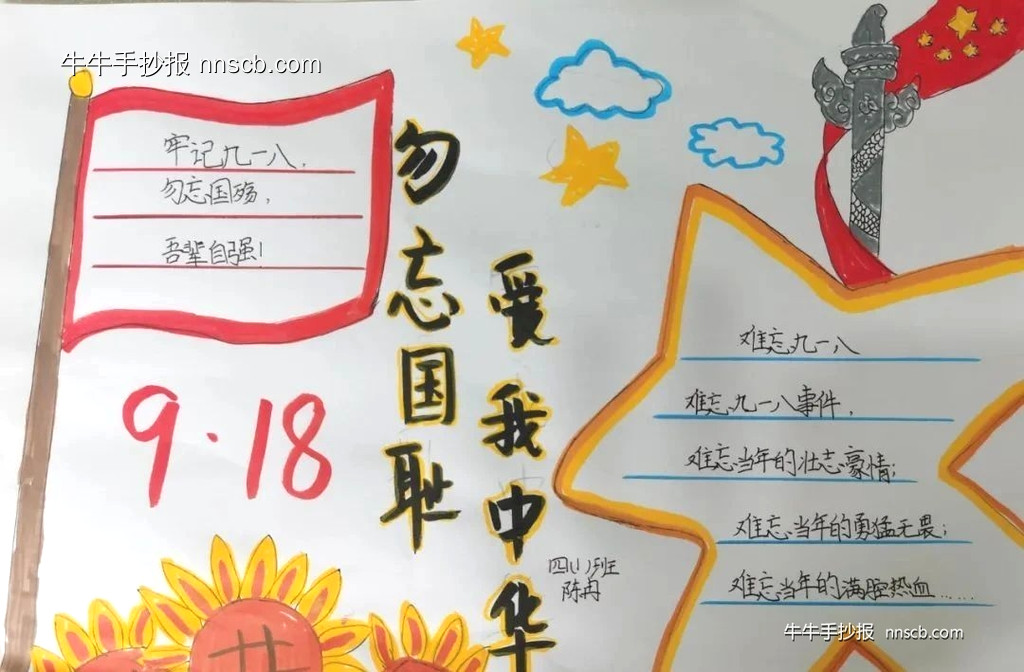 牛牛手抄报 nnscb.com
牢记九一八,
勿忘国殇,
吾辈自强!
9·18
勿忘国耻
爱我中华
难忘九一八
难忘九一八事件,
难忘当年的壮志豪情;
难忘当年的勇猛无畏;
难忘当年的满腔热血......
四(1)班
陈冉
牛牛手抄报 nnscb.com